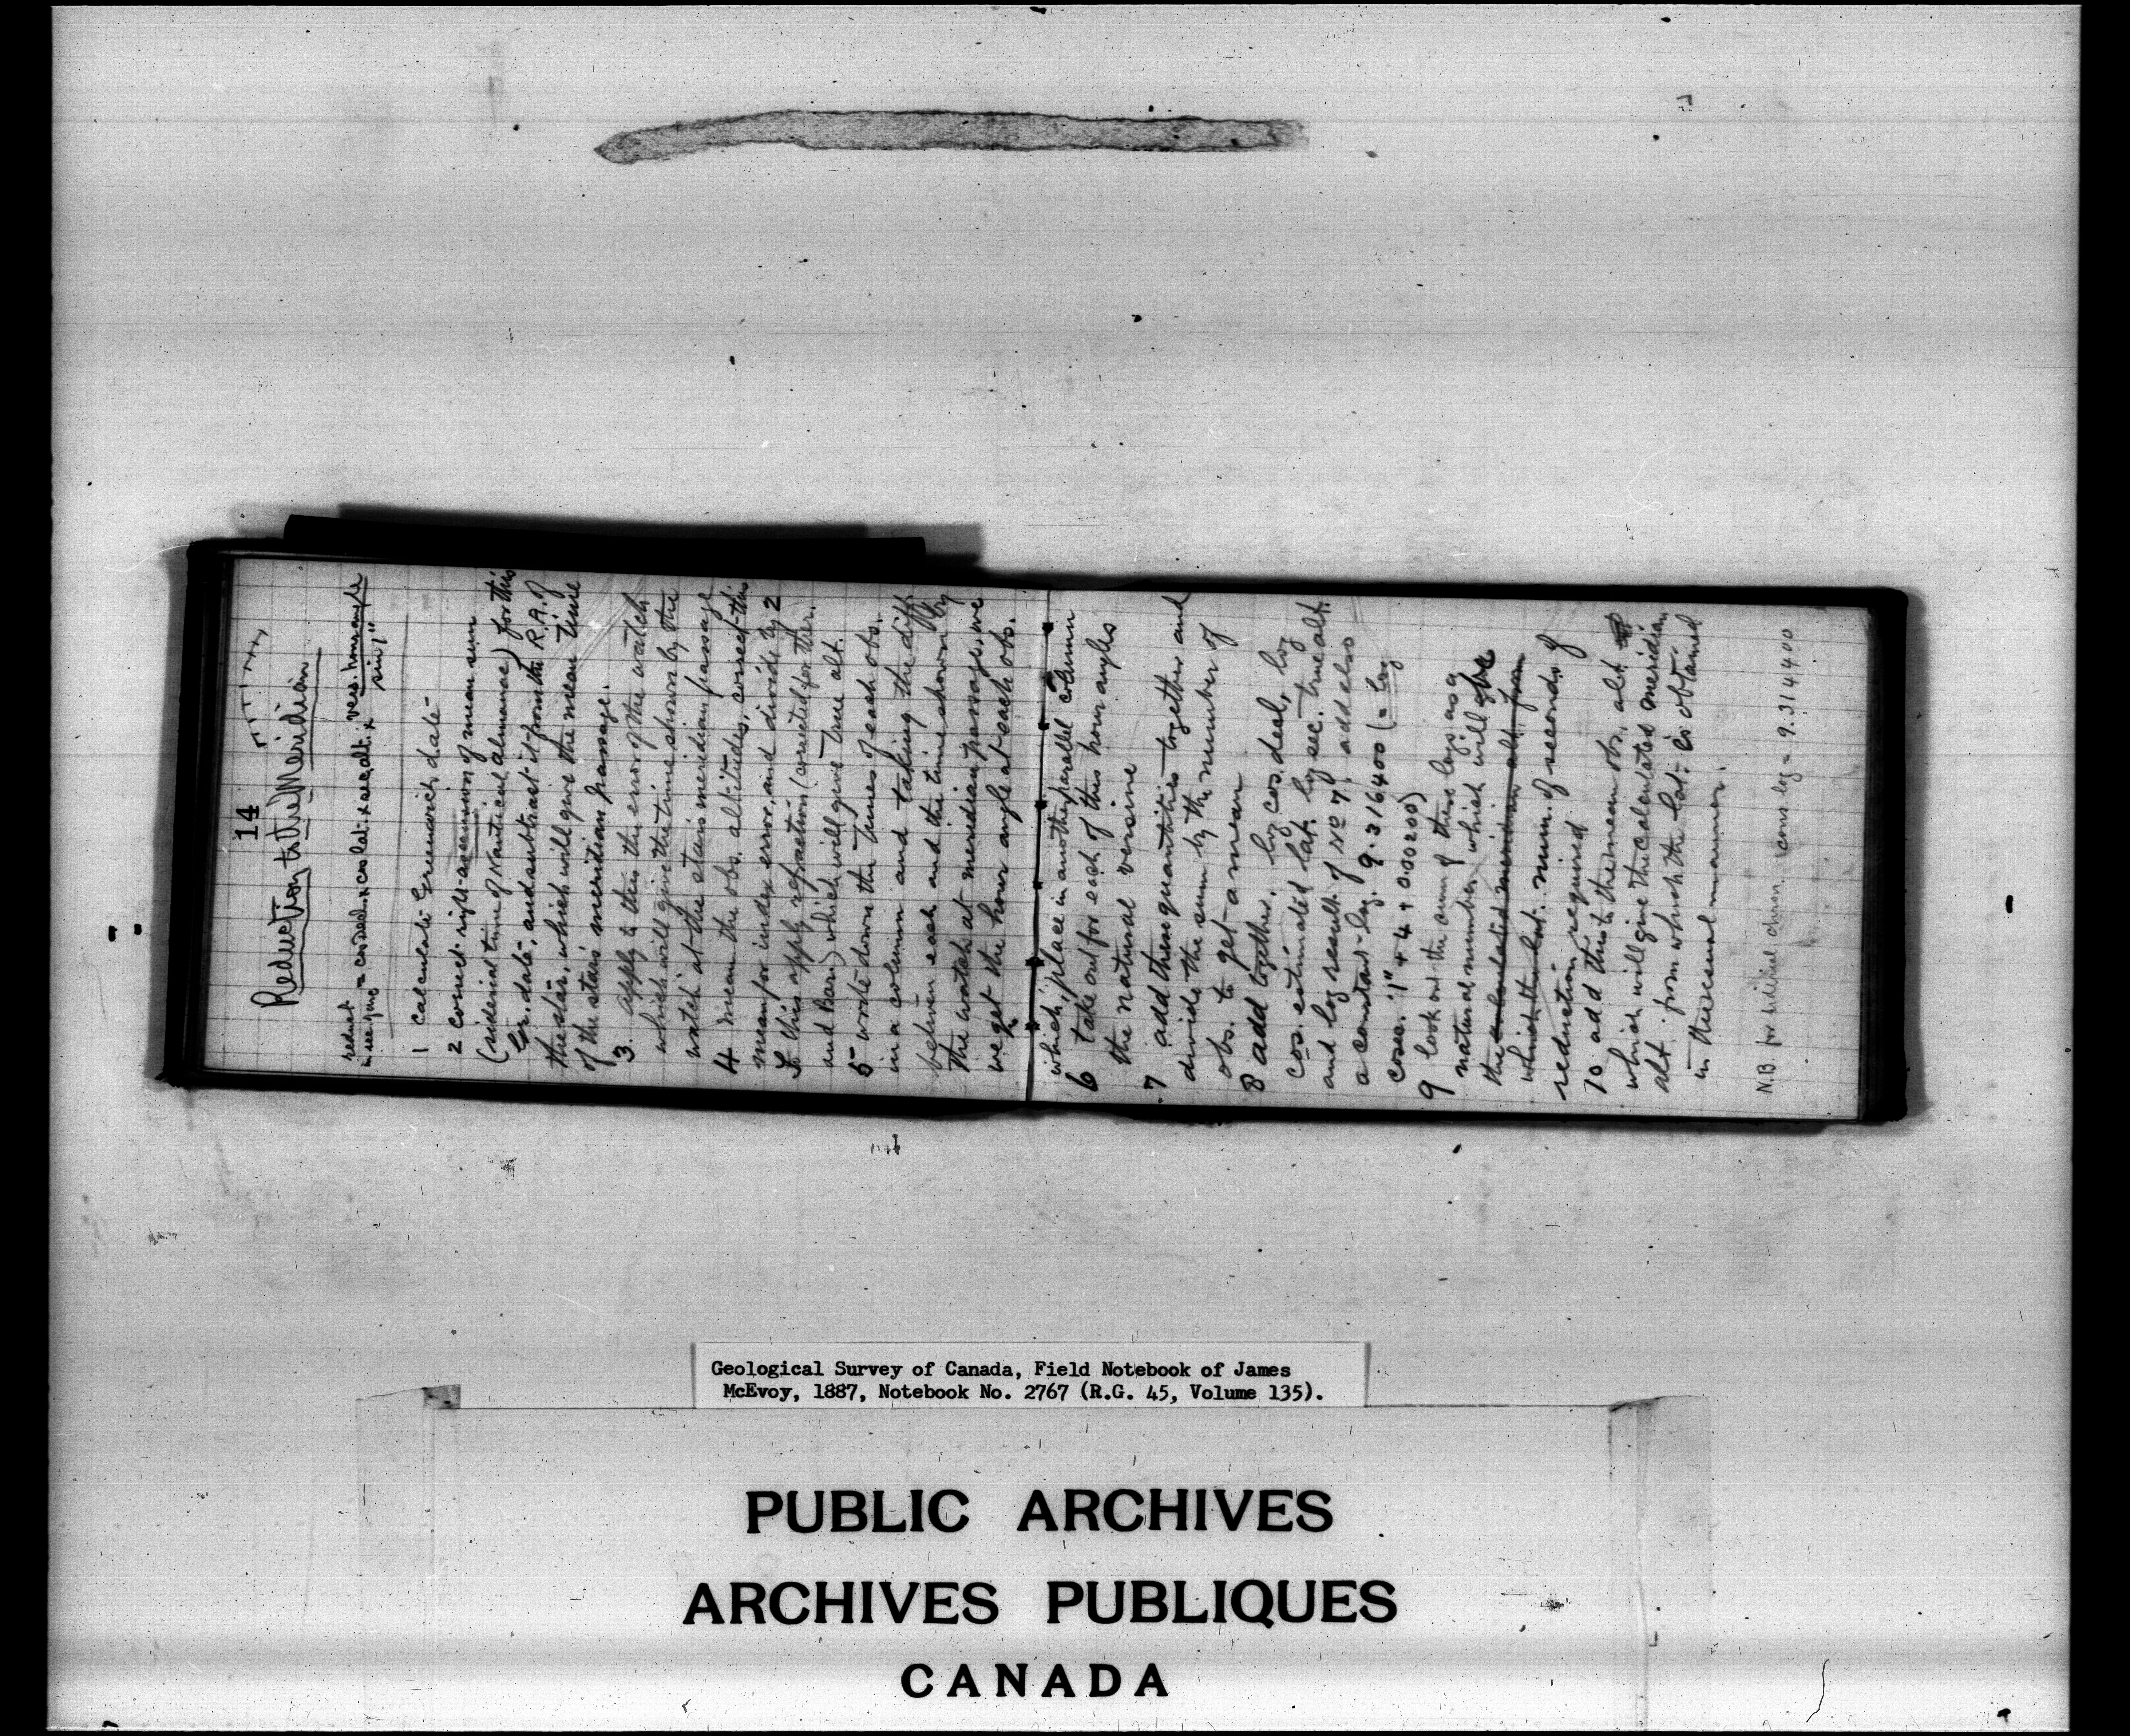 14
Reduction to the Meridian
reduct in sec. = cos decl. x cos lat. x sec. alt. x vers. hour angle
sin 1"
1 calculate Greenwich date
2 correct right ascension of mean sun
(sidereal time of Nautical almanac) for this
Gr. date, and subtract it from the R.A. of
the star, which will give the mean time
of the star's meridian passage.
3. apply to this the error of the watch
which will give the time shown by the
watch at the star's meridian passage
4 mean the obs. altitudes, correct this
mean for index error, and divide by 2
To this apply refraction (corrected for ther.
and Bar.) which will give true alt.
5 write down the times of each obs.
in a column and taking the diff.
between each and the time shown by
the watch at meridian passage, we
we get the hour angle at each obs.
which place in another parallel column
6 take out for each of this hour angles
the natural versine
7 add them quantities together and
divide the sum by the number of
obs. to get a mean
8 add together. log cos. decl., log
cos. estimated lat. log sec. true alt.
and log result of No 7, add also
a constant log. 9.316400 (= log
cosec. 1" + 4 + 0.00200)
9 look out the sum of these logs as a
natural number which will give
the calculated meridian alt. from
which the lat. num. of seconds of
reduction required
10 ad this to the mean obs. alt.
which will give the calculated meridian
alt. from which the lat. is obtained
in the usual manner.
N.B. for sidereal chron. cons. log = 9.314400
Geological Survey of Canada, Field Notebook of James
McEvoy, 1887, Notebook No. 2767 (R.G. 45, Volume 135).
PUBLIC ARCHIVES
ARCHIVES PUBLIQUES
CANADA